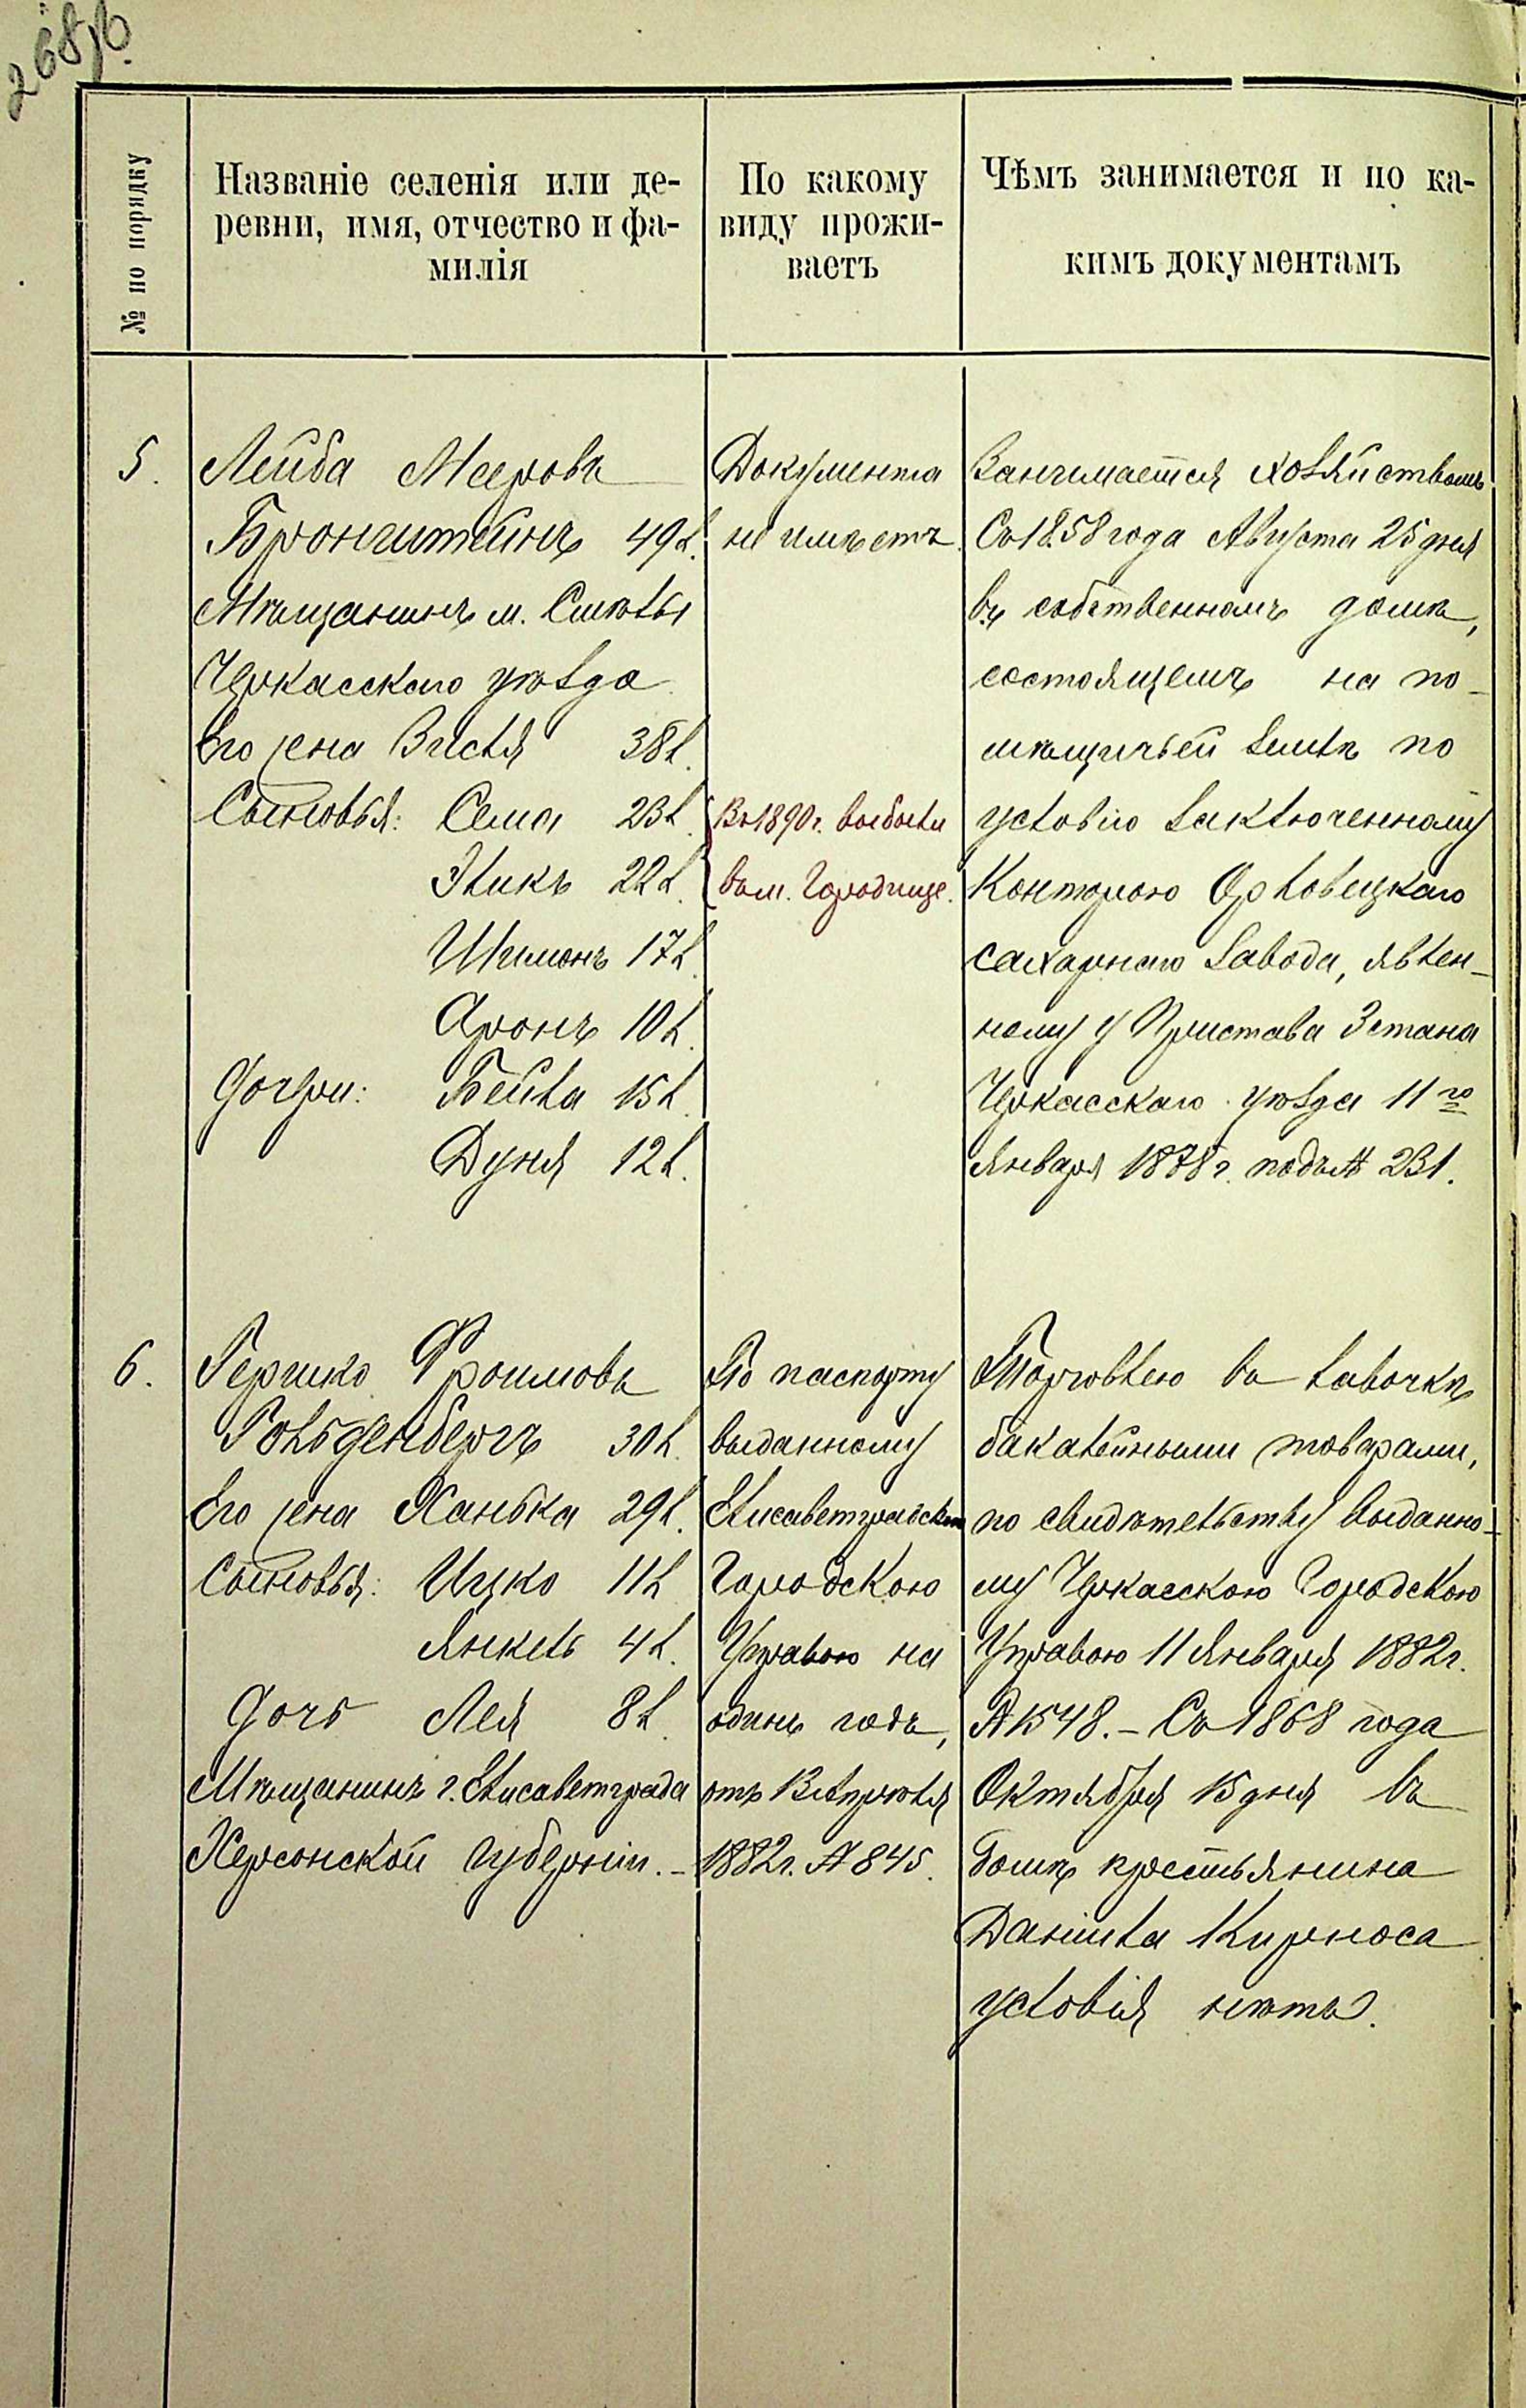 268об.
№ по порядку
Названіе селенія или де-
ревни, имя, отчество и фа-
милія
По какому
виду прожи-
ваетъ
Чѣмъ занимается и по ка-
кимъ документамъ
5.
Лейба Мееровъ
Бронштейнъ 49 л.
Мѣщанинъ м. Смѣлы
Черкасскаго уѣзда
Его жена Вися 38 л.
Сыновья: Сема 23 л.
Эликъ 22 л.
Шимонъ 17 л.
Аронъ 10 л.
Дочери: Бейла 15 л.
Дуня 12 л.
Документа
не имѣетъ.
Въ 1890 г. выбыли
въ м. Городище.
Занимается хозяйствомъ
Съ 1858 года Августа 25 дня
въ собственномъ домѣ,
состоящемъ на по-
мѣщичьей землѣ по
условію заключенному
Конторою Орловецкаго
сахарнаго завода, явлен-
ному у Пристава 3 стана
Черкасскаго уѣзда 11го
Января 1878 г. подъ № 231.
6.
Гершко Фроимовъ
Гольденбергъ 30 л.
Его жена Ханька 29 л.
Сыновья: Ицко 11 л
Янкель 4 л.
Дочь Лея 8 л.
Мѣщанинъ г. Елисаветграда
Херсонской губерніи. –
По паспорту
выданному
Елисаветградскою
Городскою
Управою на
одинъ годъ,
отъ 13 Апрѣля
1882 г. № 845.
Торговлею въ лавочкѣ
бакалейными товарами,
по свидѣтельству выданно-
му Черкасскою Городскою
Управою 11 Января 1882 г.
№ 1548. – Съ 1868 года
Октября 15 дня въ
домѣ крестьянина
Даніила Кирноса
условія нѣтъ.